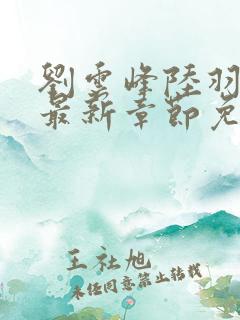 劉雲峰陸羽
最新章節免
王社旭
未经同意禁止转载